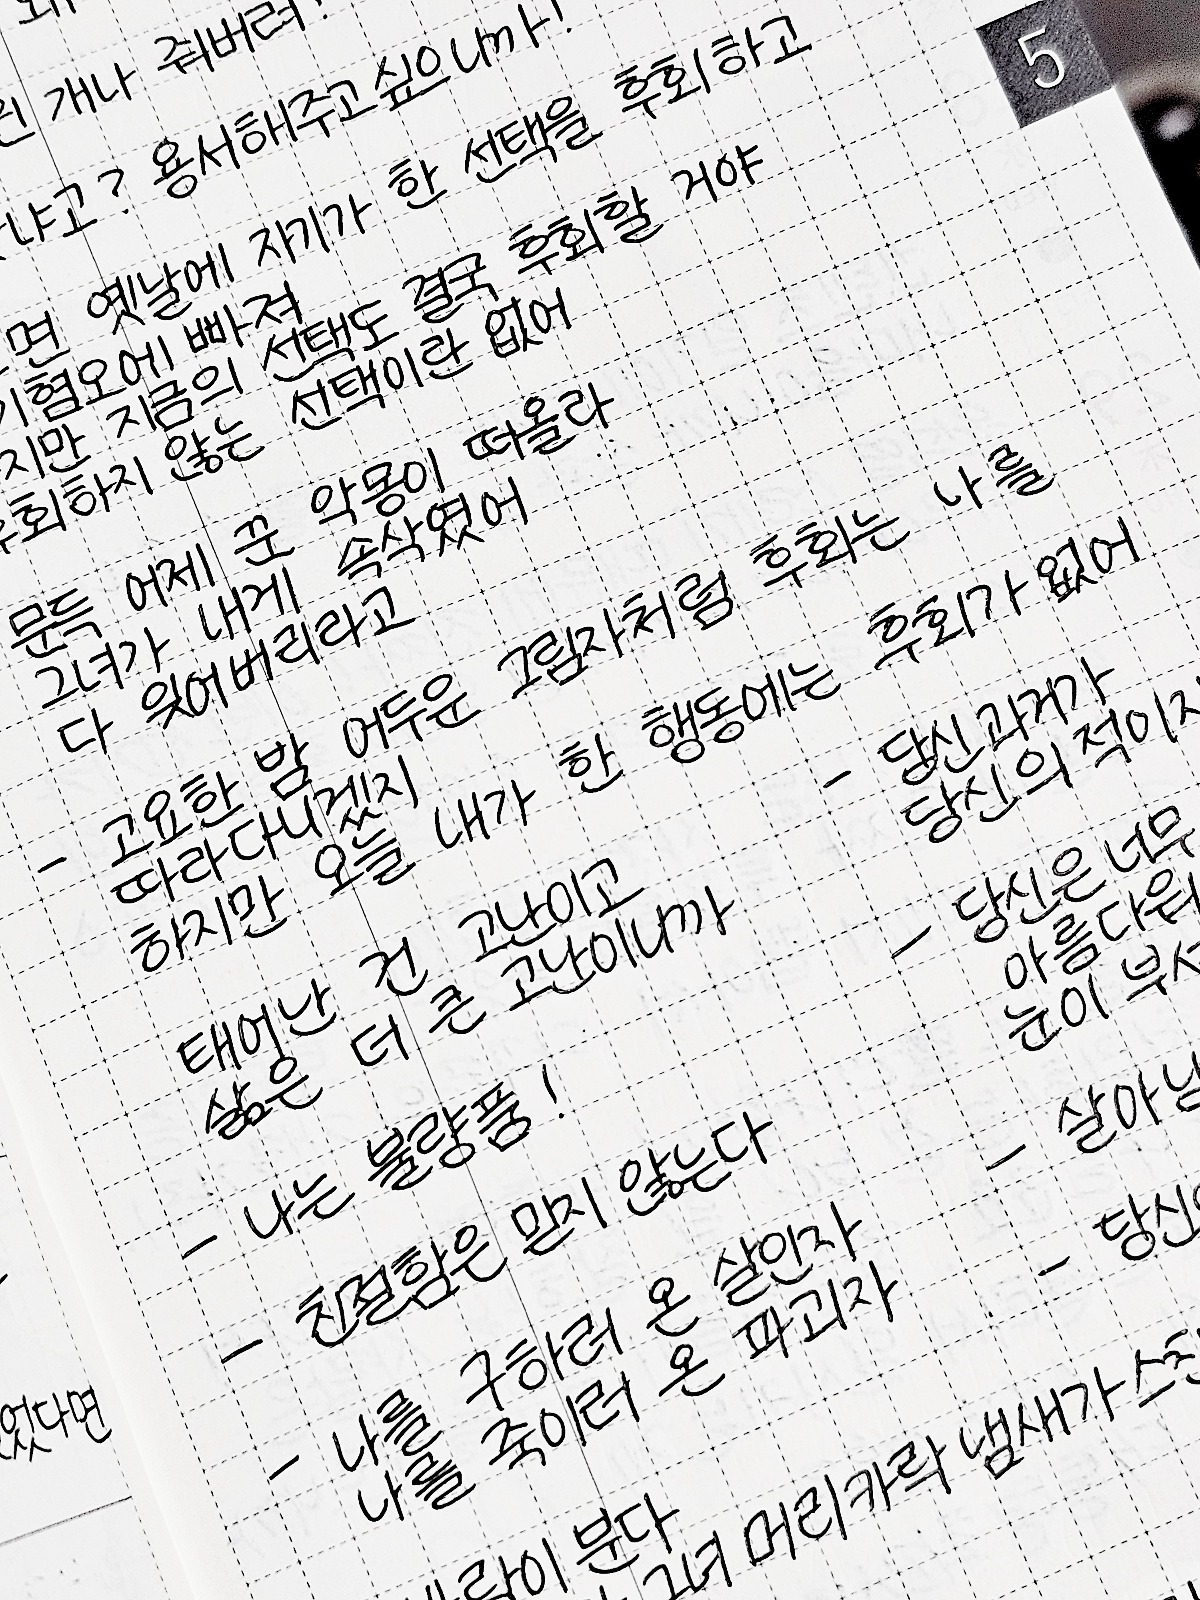 5
개나 줘버려!
냐고? 용서해주고싶으니까!
면 옛날에 자기가 한 선택을 후회하고
기혐오에 빠져
지만 지금의 선택도 결국 후회할 거야
후회하지 않는 선택이란 없어
문득 어제 꾼 악몽이 떠올라
그녀가 내게 속삭였어
다 잊어버리라고
- 고요한 밤 어두운 그림자처럼 후회는 나를
따라다니겠지
하지만 오늘 내가 한 행동에는 후회가 없어
태어난 건 고난이고
삶은 더 큰 고난이니까
- 나는 불량품!
- 친절함은 믿지 않는다
- 나를 구하러 온 살인자
나를 죽이러 온 파괴자
바람이 분다
그녀 머리카락 냄새가 스친
- 당신 과거가
당신의 적이지
- 당신은 너무
아름다워
눈이 부셔
- 살아남
- 당신
었다면